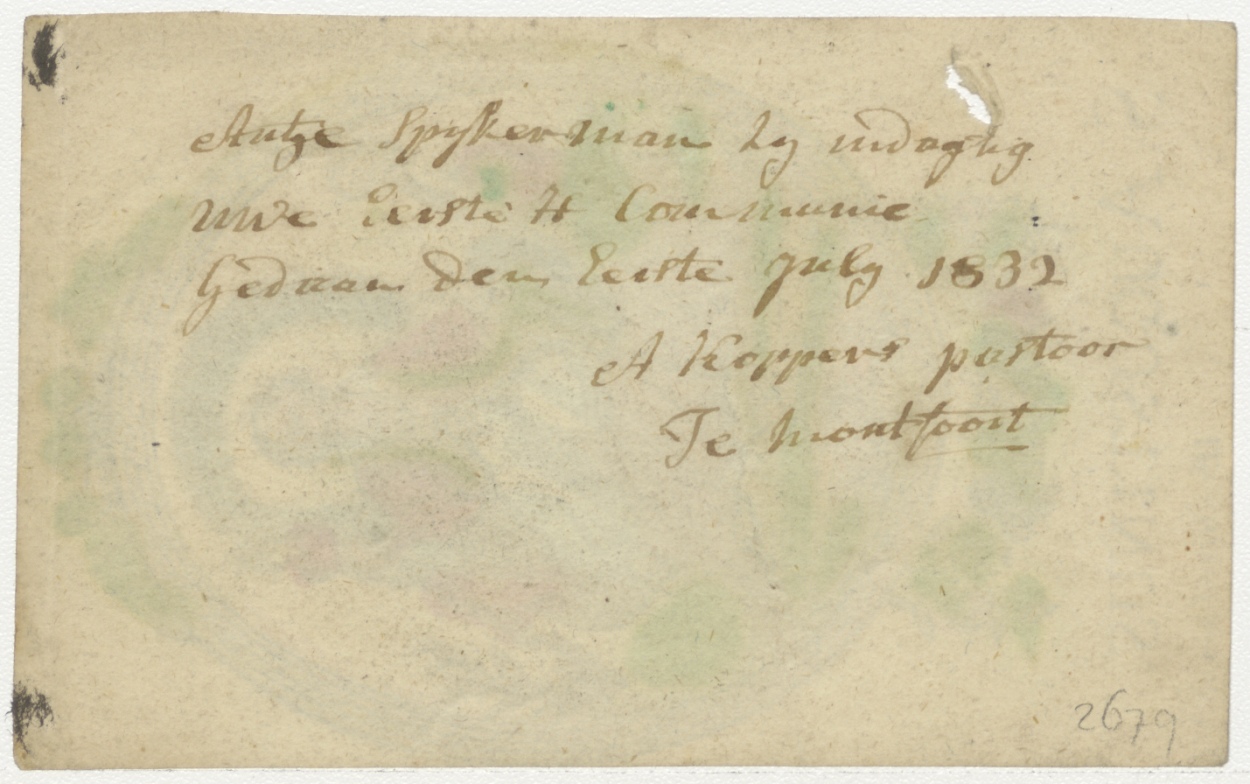 Antje Spijkerman Zy indagtig
uwe Eerste H Communie
Gedaan den Eerste july 1832
A Koppers pastoor
Te montfoort
2679